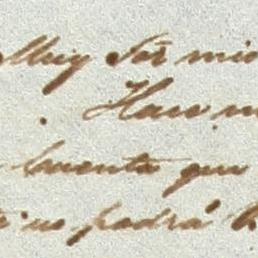 Muy Sor mio
Hace m
cuenta que
no podrá